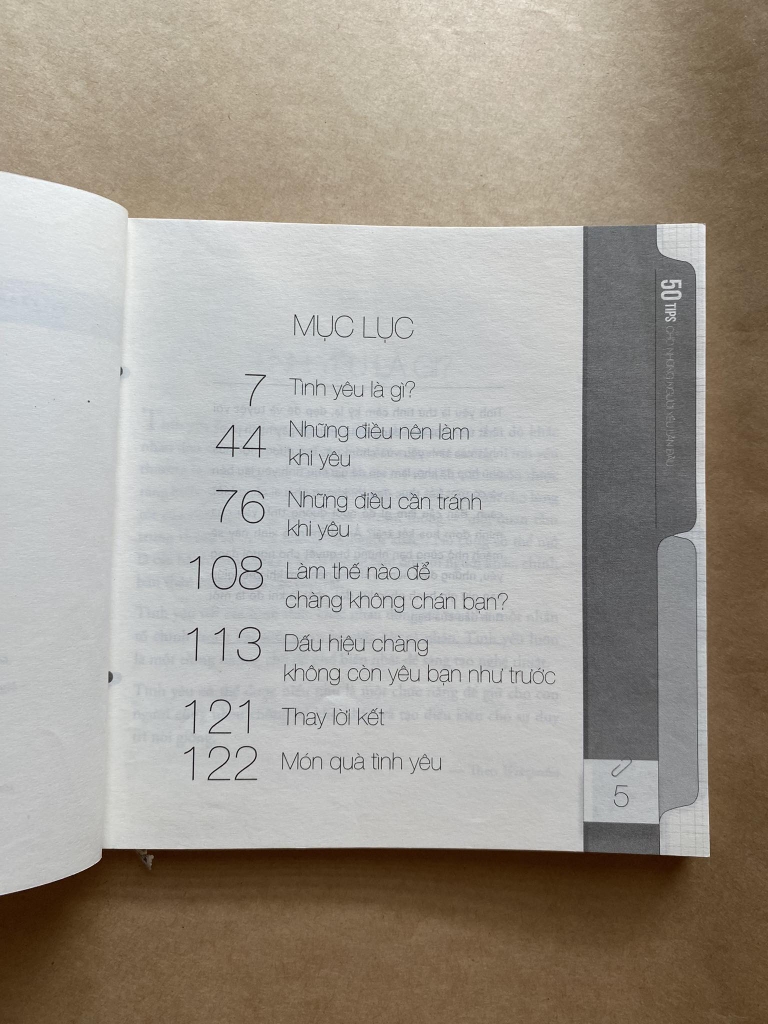 MỤC LỤC
7 Tình yêu là gì?
44 Những điều nên làm
khi yêu
76 Những điều cần tránh
khi yêu
108 Làm thế nào để
chàng không chán bạn?
113 Dấu hiệu chàng
không còn yêu bạn như trước
121 Thay lời kết
122 Món quà tình yêu
50 TIPS
5